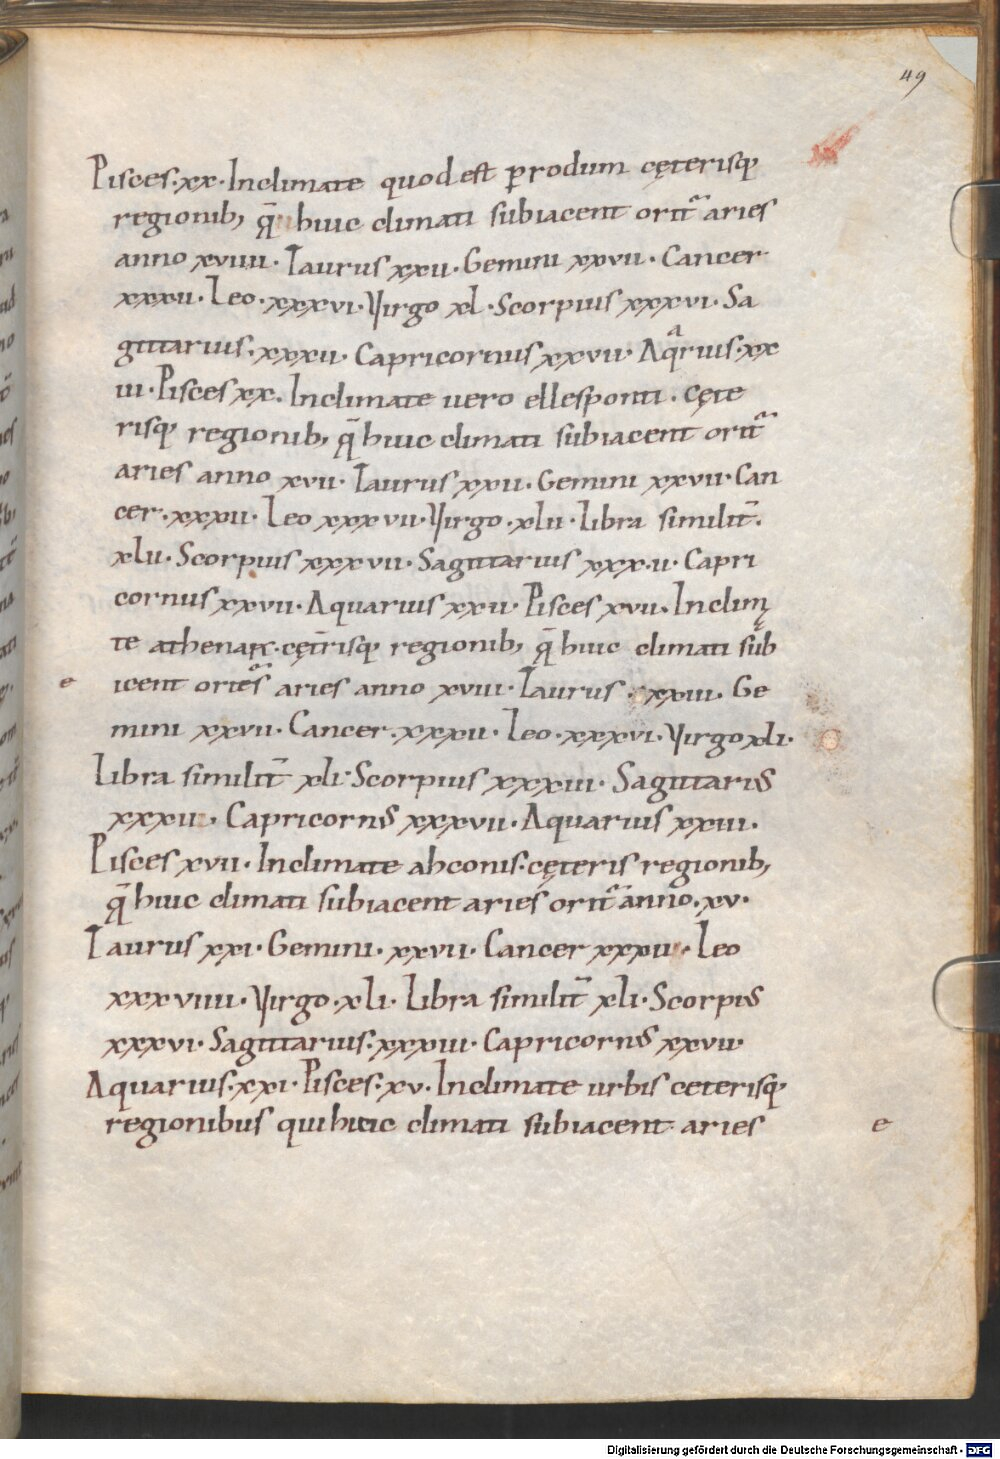 49
Pisces·xx·Inclimate quod est ꝑrodum cęterisq;
regionib; q̄ huic climati subiacent orit᷑ aries
anno xviiii· Taurus xxii· Gemini xxvii· Cancer
xxxii· Leo·xxxvi· Virgo xl·Scorpius xxxvi· Sa
gittarius·xxxii· Capricornus xxvii· Aqᵃrius·xx
iii·Pisces xx. Inclimate uero ellesponti· cęte
risq; regionib; q̄ huic climati subiacent orit᷑
aries anno xvii· Taurus xxii· Gemini xxvii· Can
cer·xxxii· Leo xxxvii· Virgo·xlii· Libra similit̄.
xlii· Scorpius xxxvii· Sagittarius xxx·ii· Capri
cornus xxvii· Aquarius xxii· Pisces xvii. Inclimę
te athenaꝝ·cęt̄risq; regionib; q̄ huic climati sub
icent ories᷑ aries anno xviii· Taurus·xxiii. Ge
e
mini xxvii· Cancer·xxxii· Leo·xxxvi· Virgo xli·
Libra similit̄ xli· Scorpius xxxiii· Sagittari9
xxxii·, Capricorn9 xxxvii· Aquarius xxiii·
Pisces xvii· Inclimate ahconis·cęteris regionib;
q̄ huic climati subiacent aries orit᷑ anno·xv·
Taurus xxi· Gemini· xxvii· Cancer xxxii· Leo
xxxviiii· Virgo·xli· Libra similit̄ xli· Scorpi9
xxxvi· Sagittarius·xxxiii· Capricorn9 xxvii·
Aquarius·xxi· Pisces·xv· Inclimate urbis ceterisq;
regionibus qui huic climati subiacent aries
e
Digitalisierung gefördert durch die Deutsche Forschungsgemeinschaft - DFG